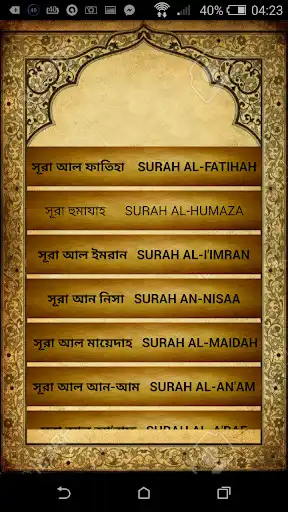 40% 04:23
সূরা আল ফাতিহা SURAH AL-FATIHAH
সূরা হুমাযাহ SURAH AL-HUMAZA
সূরা আল ইমরান SURAH AL-I'IMRAN
সূরা আন নিসা SURAH AN-NISAA
সূরা আল মায়েদাহ SURAH AL-MAIDAH
সূরা আল আন-আম SURAH AL-AN'AM
SURAH AL-A'RAF